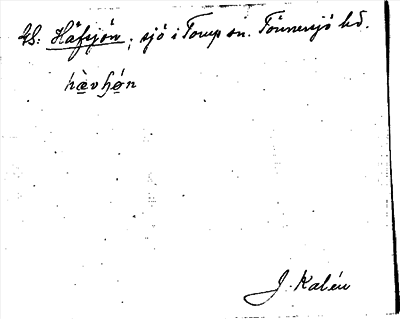 GS: Häfsjön; sjö i Torup sn. Tönnersjö hd.
hæ̀vhǿn
J. Kalén